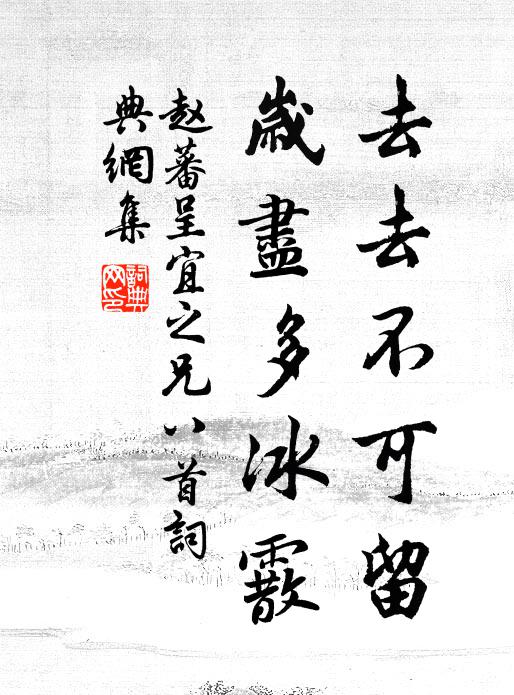 去去不可留
歲盡多冰霰
赵蕃呈宜之兄八首詞
典網集
詞典
网印